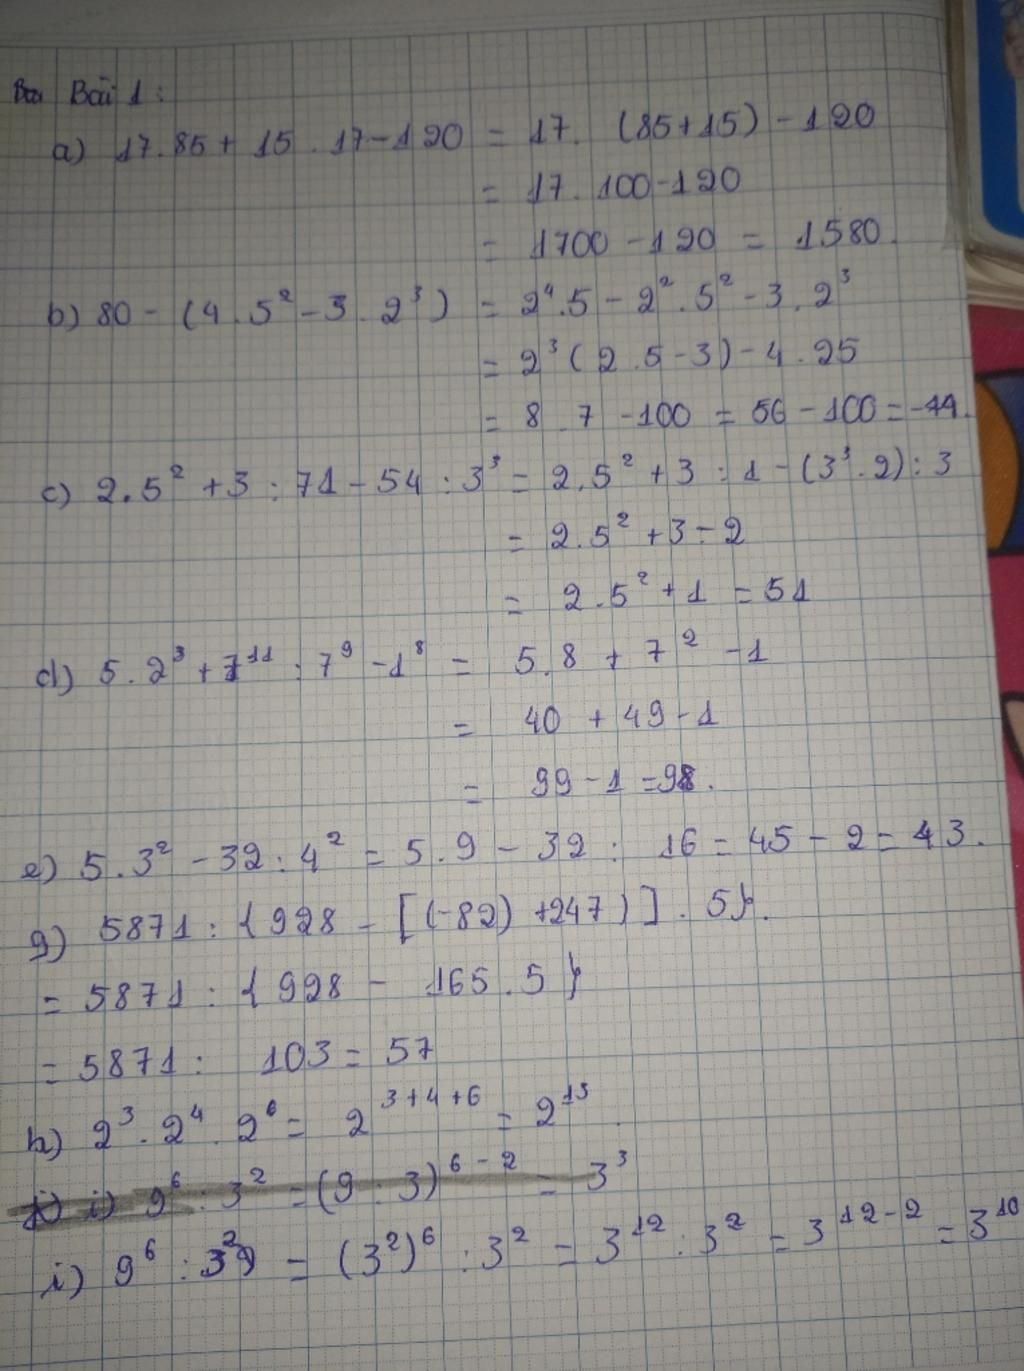 Bài 1:
a) 17.85 + 15 . 17 - 120 = 17. (85 + 15) - 120
= 17 . 100 - 120
= 1700 - 120 = 1580.
b) 80 - (4 . 5² - 3 . 2³) = 2⁴.5 - 2² . 5² - 3 . 2³
= 2³ (2 . 5 - 3) - 4 . 25
= 8 . 7 - 100 = 56 - 100 = -44.
c) 2.5² + 3 : 71 - 54 : 3³ = 2.5² + 3 : 1 - (3³ . 2) : 3
= 2.5² + 3 - 2
= 2.5² + 1 = 51
d) 5 . 2³ + 7¹¹ : 7⁹ - 1⁸ = 5.8 + 7² - 1
= 40 + 49 - 1
= 99 - 1 = 98.
e) 5 . 3² - 32 : 4² = 5 . 9 - 32 : 16 = 45 - 2 = 43.
g) 5871 : { 928 - [(-82) + 247)] . 5}.
= 5871 : { 928 - 165 . 5 }
= 5871 : 103 = 57
h) 2³ . 2⁴ . 2⁶ = 2³⁺⁴⁺⁶ = 2¹³.
i) 9⁶ : 3² = (9 : 3)⁶⁻² = 3³
i) 9⁶ : 3² = (3²)⁶ : 3² = 3¹² : 3² = 3¹²⁻² = 3¹⁰